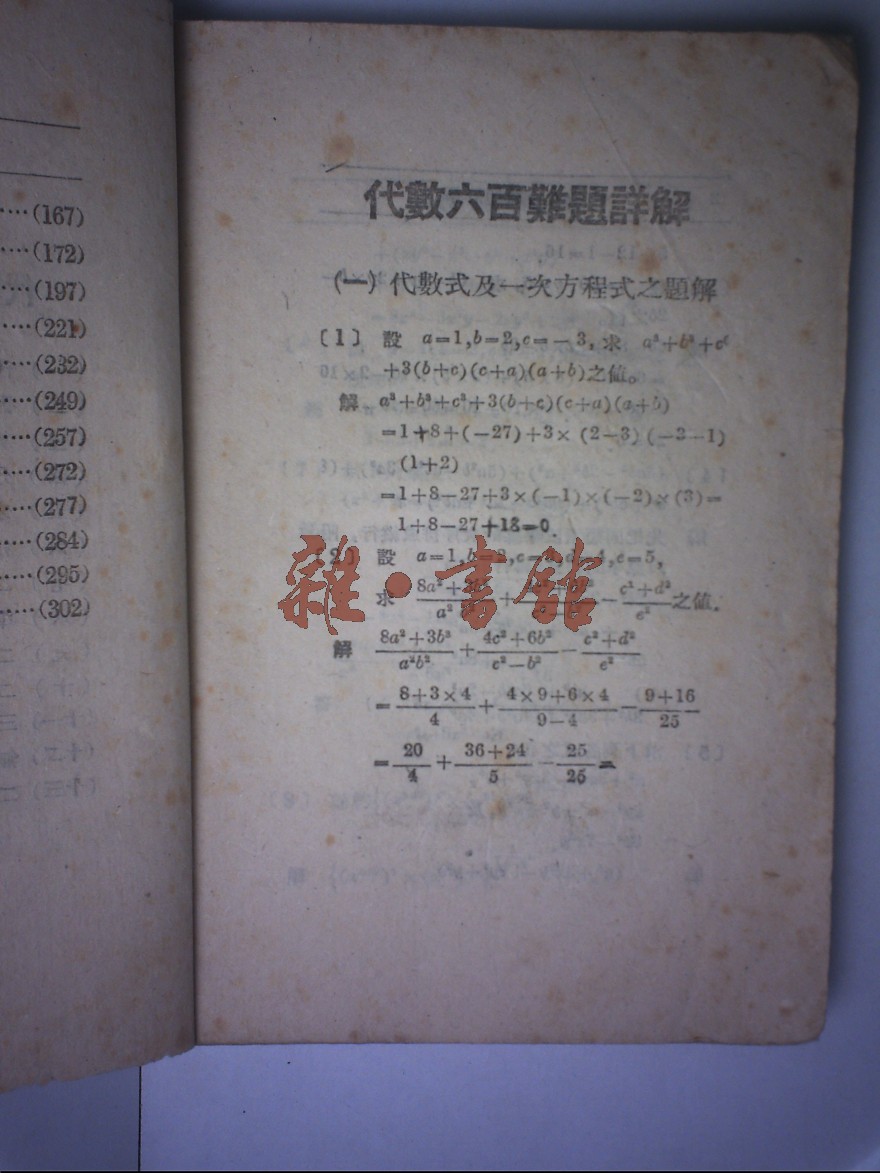 ……(167)
……(172)
……(197)
……(221)
……(232)
……(249)
……(257)
……(272)
……(277)
……(284)
……(295)
……(302)
代數六百難題詳解
(一) 代數式及一次方程式之題解
〔1〕 設 a=1,b=2,c=−3, 求 a³+b³+c³
+3(b+c)(c+a)(a+b)之値。
解 a³+b³+c³+3(b+c)(c+a)(a+b)
=1+8+(−27)+3×(2−3)(−3−1)
(1+2)
=1+8−27+3×(−1)×(−2)×(3)=
1+8−27+18=0.
〔2〕 設 a=1,b=2,c=3,d=4,e=5,
求 (8a²+3b²)/(a²b²)+(4c²+6b²)/(c²−b²)−(c²+d²)/e² 之値.
解 (8a²+3b²)/(a²b²)+(4c²+6b²)/(c²−b²)−(c²+d²)/e²
=(8+3×4)/4+(4×9+6×4)/(9−4)−(9+16)/25
=20/4+(36+24)/5−25/25=
雜·書館